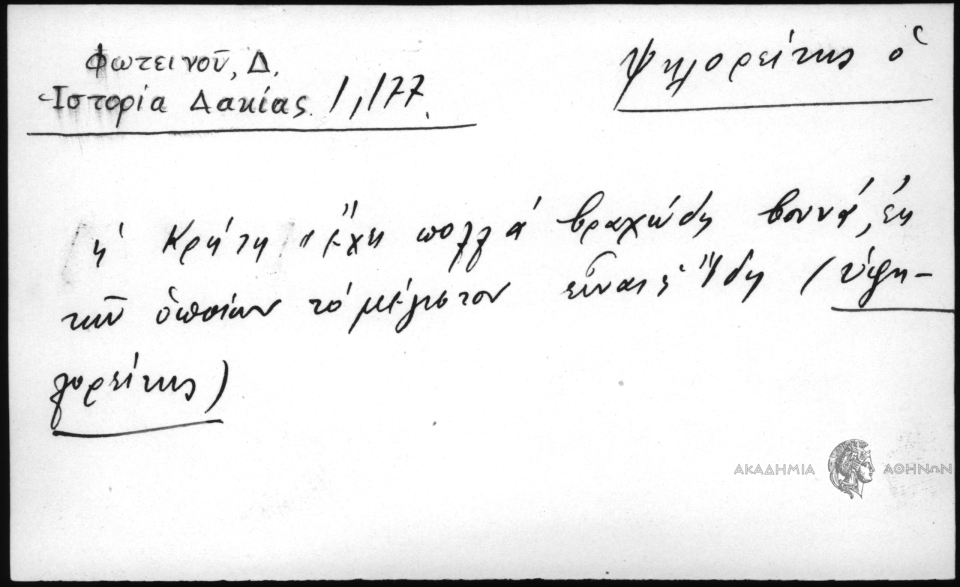 Φωτεινοῦ, Δ.
Ἱστορία Δακίας 1,177.
Ψηλορείτης ὁ
ἡ Κρήτη ἔχει πολλά βραχώδη βουνά, ἐκ
τῶν ὁποίων τό μέγιστον εἶναι ἡ Ἴδη (ὑψη-
λορείτης)
ΑΚΑΔΗΜΙΑ ΑΘΗΝΩΝ